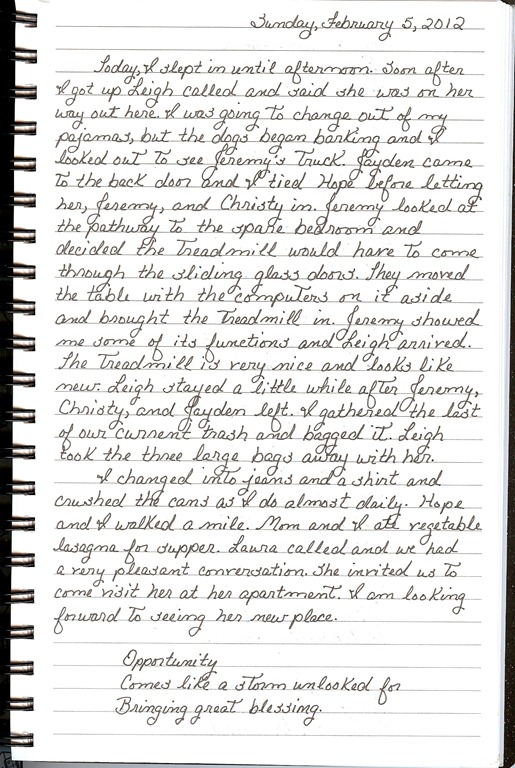 Sunday, February 5, 2012
Today, I slept in until afternoon. Soon after
I got up Leigh called and said she was on her
way out here. I was going to change out of my
pajamas, but the dogs began barking and I
looked out to see Jeremy's Truck. Jayden came
to the back door and I tied Hope before letting
her, Jeremy, and Christy in. Jeremy looked at
the pathway to the spare bedroom and
decided the Treadmill would have to come
through the sliding glass doors. They moved
the table with the computers on it aside
and brought the Treadmill in. Jeremy showed
me some of its functions and Leigh arrived.
The Treadmill is very nice and looks like
new. Leigh stayed a little while after Jeremy,
Christy, and Jayden left. I gathered the last
of our current trash and bagged it. Leigh
took the three large bags away with her.
I changed into jeans and a shirt and
crushed the cans as I do almost daily. Hope
and I walked a mile. Mom and I ate vegetable
lasagna for supper. Laura called and we had
a very pleasant conversation. She invited us to
come visit her at her apartment. I am looking
forward to seeing her new place.
Opportunity
Comes like a storm unlooked for
Bringing great blessing.